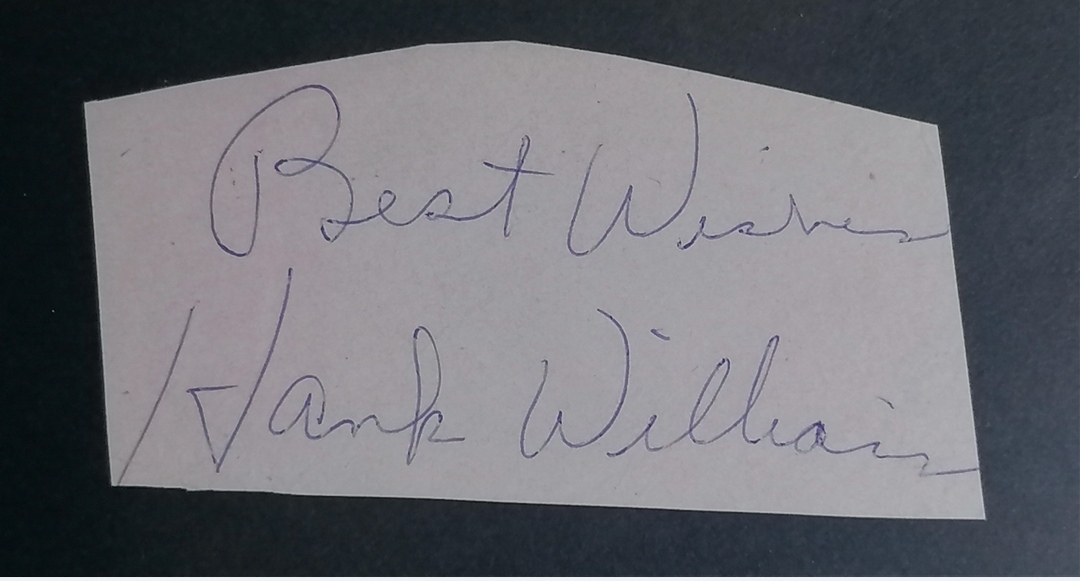 Best Wishes
Hank Williams